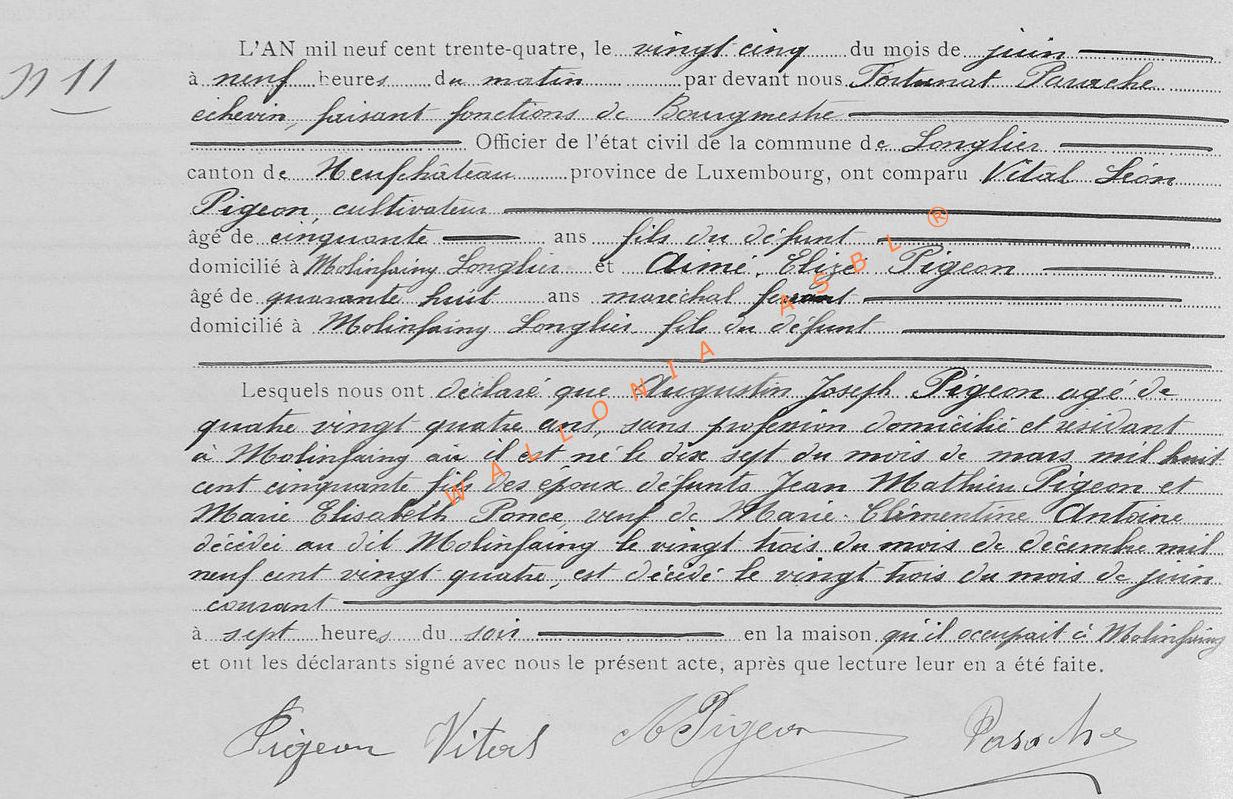 N 11
L'AN mil neuf cent trente-quatre, le vingt cinq du mois de juin
à neuf heures du matin par devant nous Fortunat Parache
échevin, faisant fonctions de Bourgmestre
Officier de l'état civil de la commune de Longlier
canton de Neufchâteau province de Luxembourg, ont comparu Vital Léon
Pigeon, cultivateur
âgé de cinquante ans fils du défunt
domicilié à Molinfaing Longlier et Aimé, Elisé Pigeon
âgé de quarante huit ans maréchal ferrant
domicilié à Molinfaing Longlier, fils du défunt
Lesquels nous ont déclaré que Augustin Joseph Pigeon agé de
quatre vingt quatre ans, sans profession domicilié et résidant
à Molinfaing où il est né le dix sept du mois de mars mil huit
cent cinquante fils des époux défunts Jean Mathieu Pigeon et
Marie Elisabeth Ponce, veuf de Marie-Clémentine Antoine
décédée au dit Molinfaing le vingt trois du mois de décembre mil
neuf cent vingt quatre, est décédé le vingt trois du mois de juin
courant
à sept heures du soir en la maison qu'il occupait à Molinfaing
et ont les déclarants signé avec nous le présent acte, après que lecture leur en a été faite.
Pigeon Vital A Pigeon Parache
WALLONIA ASBL ®